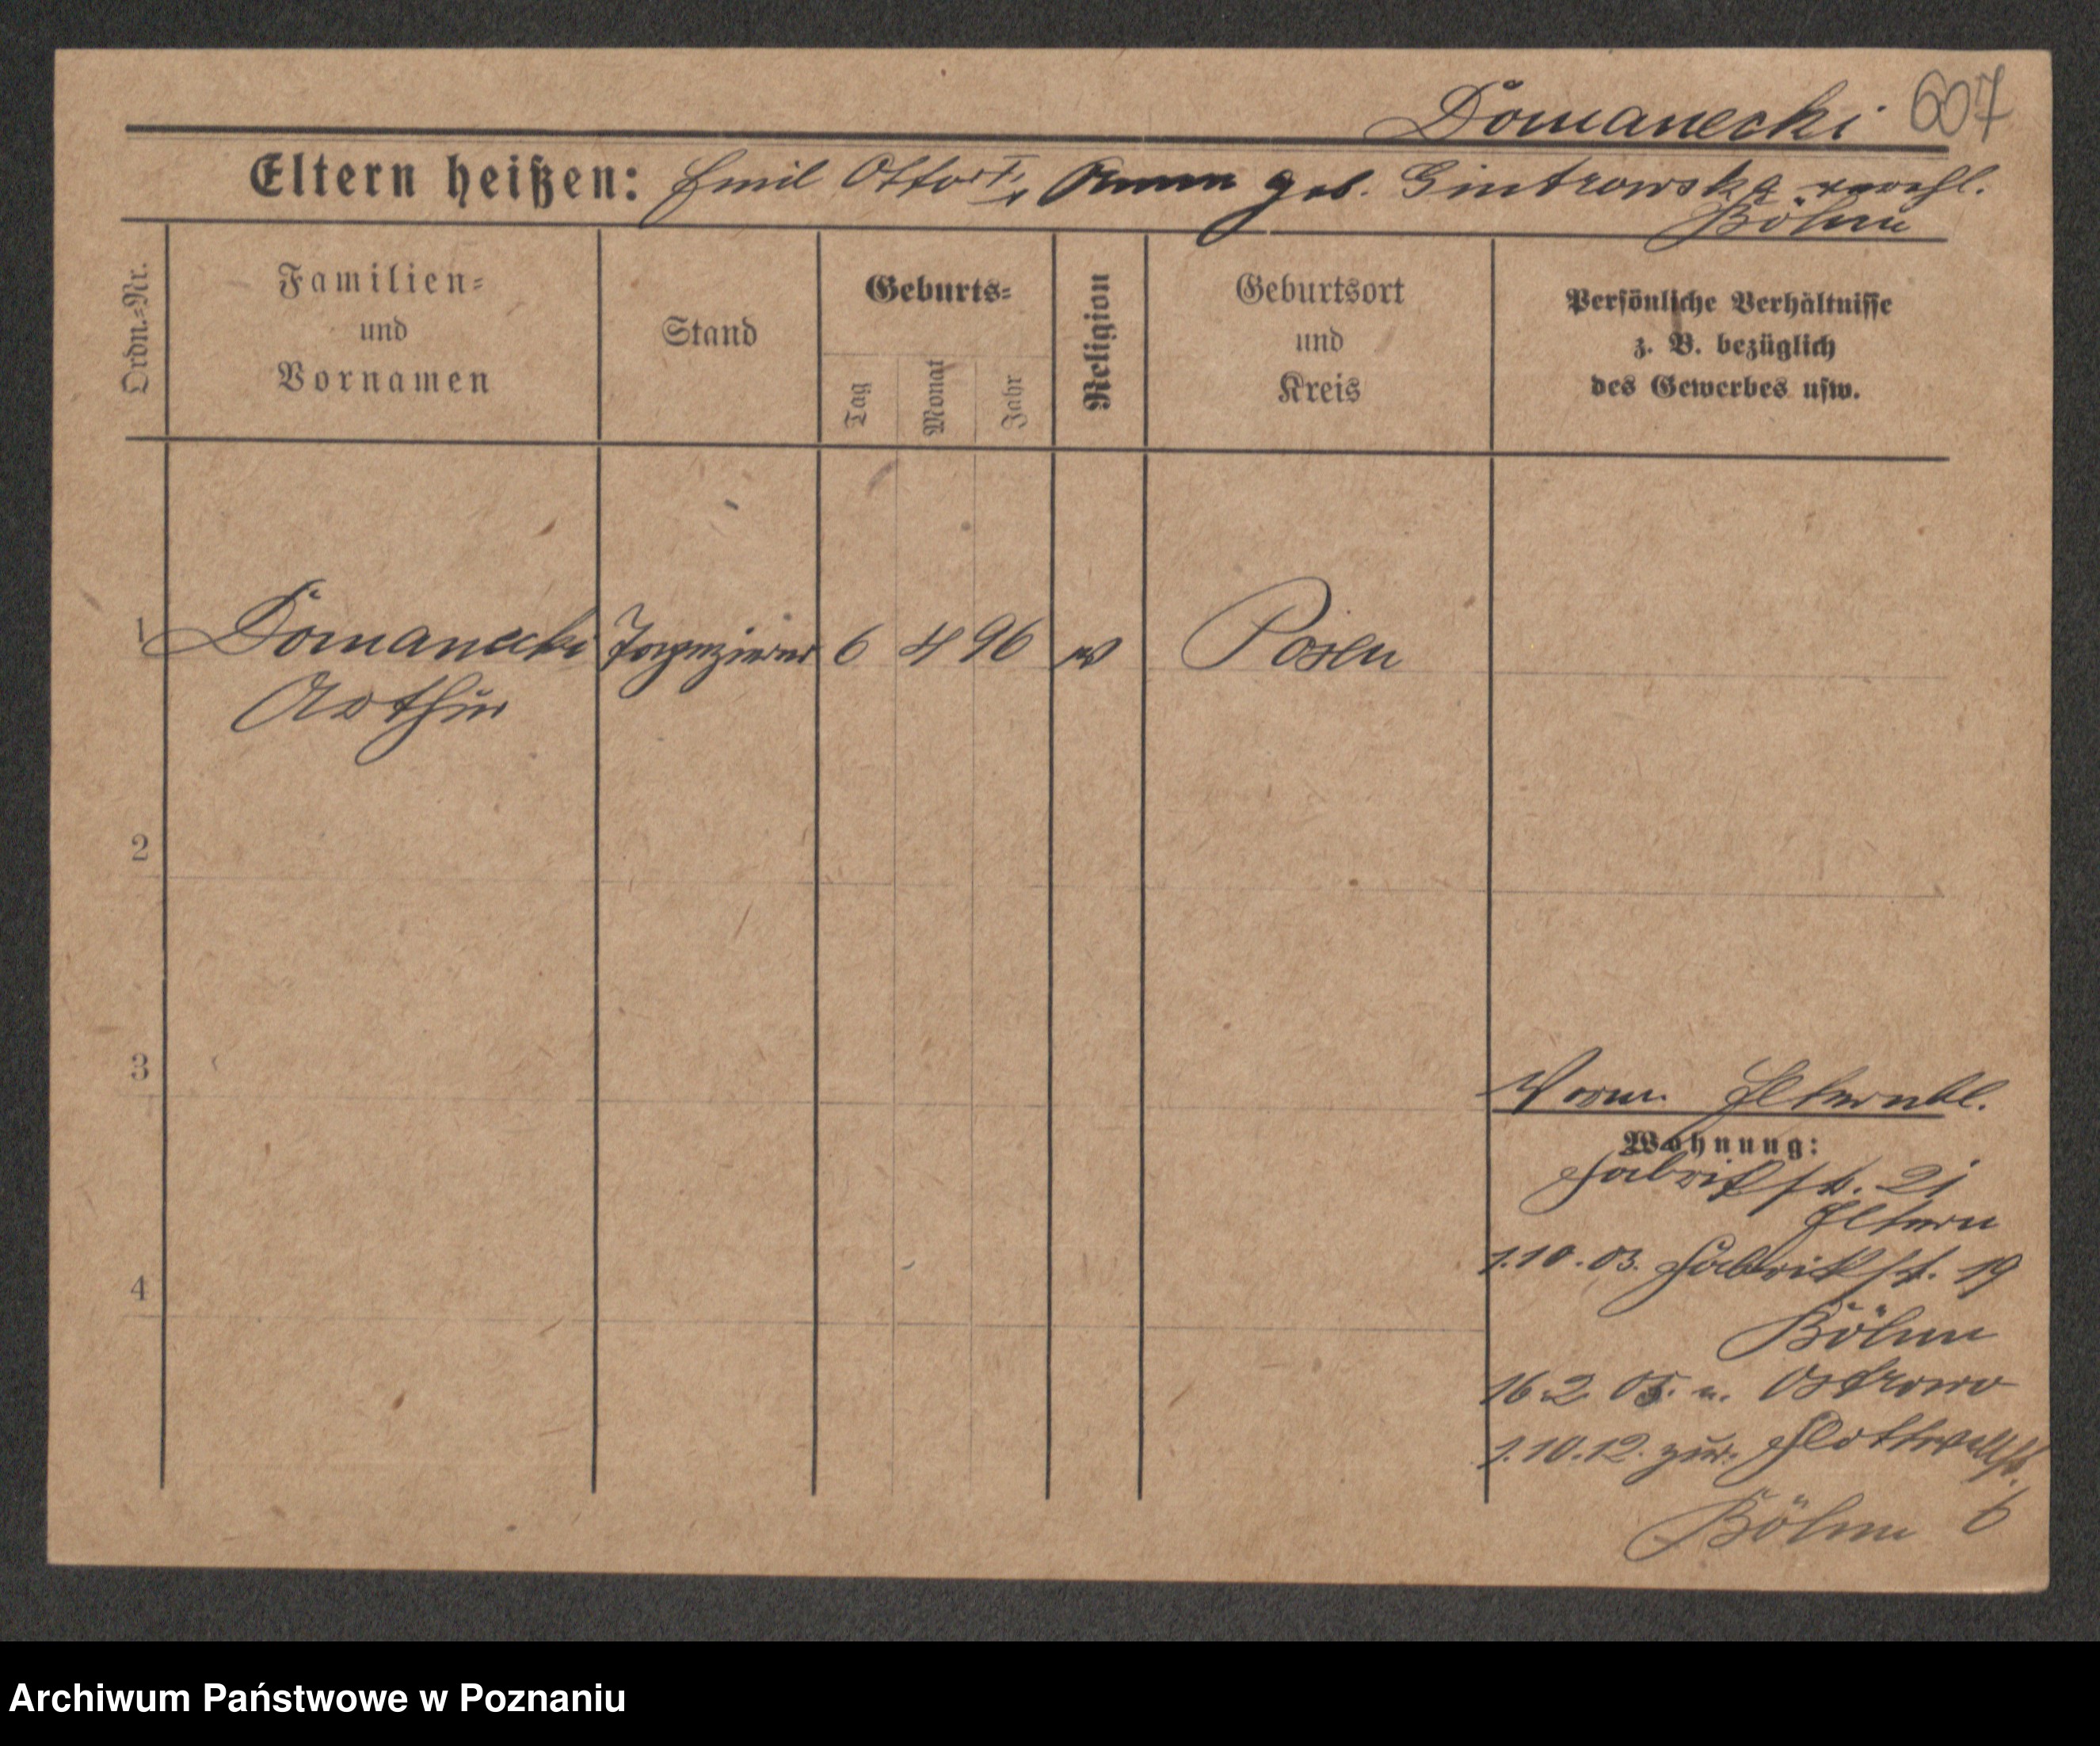 Domanecki 607
Eltern heißen: Emil Otto geb. Gintrowska
Böhm
Ordn.=Nr.
Familien=
und
Vornamen
Stand
Geburts=
Tag
Monat
Jahr
Religion
Geburtsort
und
Kreis
Persönliche Verhältnisse
z. B. bezüglich
des Gewerbes usw.
1 Domanecki 6 4 96 Posen
Arthur
2
3
4
Vorm.
Wohnung:
Fabrikstr. 21
Eltern
1.10.03. Fabrikstr. 19
Böhm
16.2.05. n. Ostrowo
1.10.12. zur. Flottwellstr.
Böhm 6
Archiwum Państwowe w Poznaniu